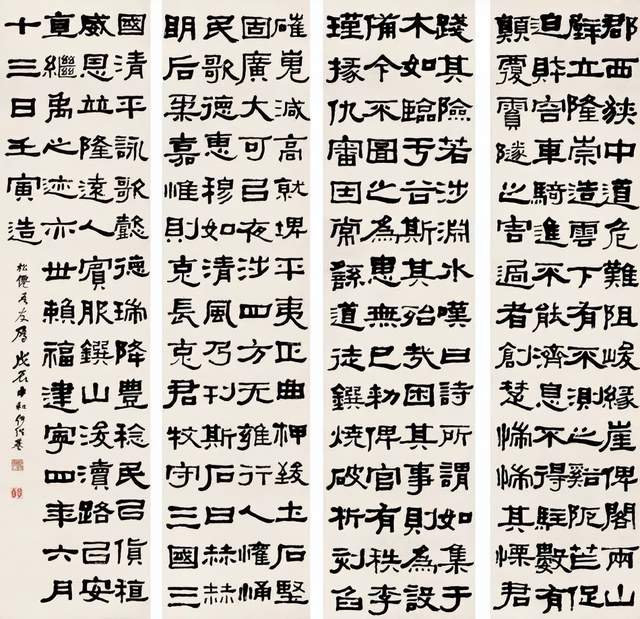 郡西狹中道危難阻峻緣崖俾閣兩山
壁立隆崇造雲下有不測之谿阨芒促
迫財容車騎進不能濟息不得駐數有
顛覆霣隧之害過者創楚惴惴其慄君
踐其險若涉淵冰嘆曰詩所謂如集于
木如臨于谷斯其殆哉困其事則為設
備今不圖之為患無已勑俾官有秩李
瑾掾仇審因常繇道徒鐉燒破析刻臽
磪嵬減高就埤平夷正曲柙致土石堅
固廣大可以夜涉四方无雍行人懽悀
民歌德惠穆如清風乃刊斯石曰赫赫
明后柔嘉惟則克長克君牧守三國三
國清平詠歌懿德瑞降豐稔民以貨稙
威恩竝隆遠人賓服鐉山浚瀆路以安
直繼禹之迹亦世賴福建寧四年六月
十三日壬寅造
松僊友属 戊辰中何紹基